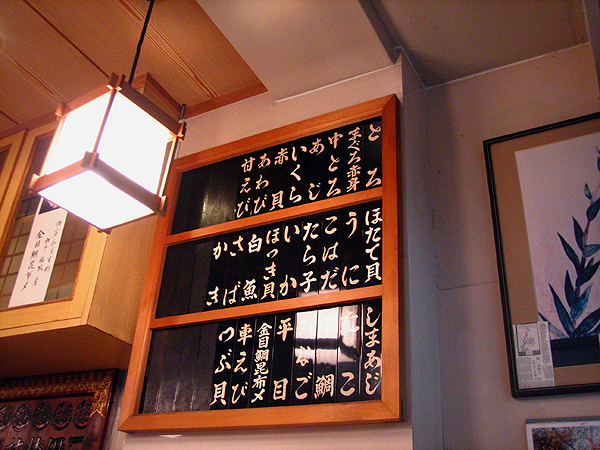 とろ
本まぐろ赤身
中とろ
あじ
いくら
赤貝
あわび
甘えび
ほたて貝
うに
こはだ
たら子
いか
ほっき貝
白魚
さば
かき
しまあじ
たこ
鯛
あなご
平目
金目鯛昆布〆
車えび
つぶ貝
金目鯛昆布〆